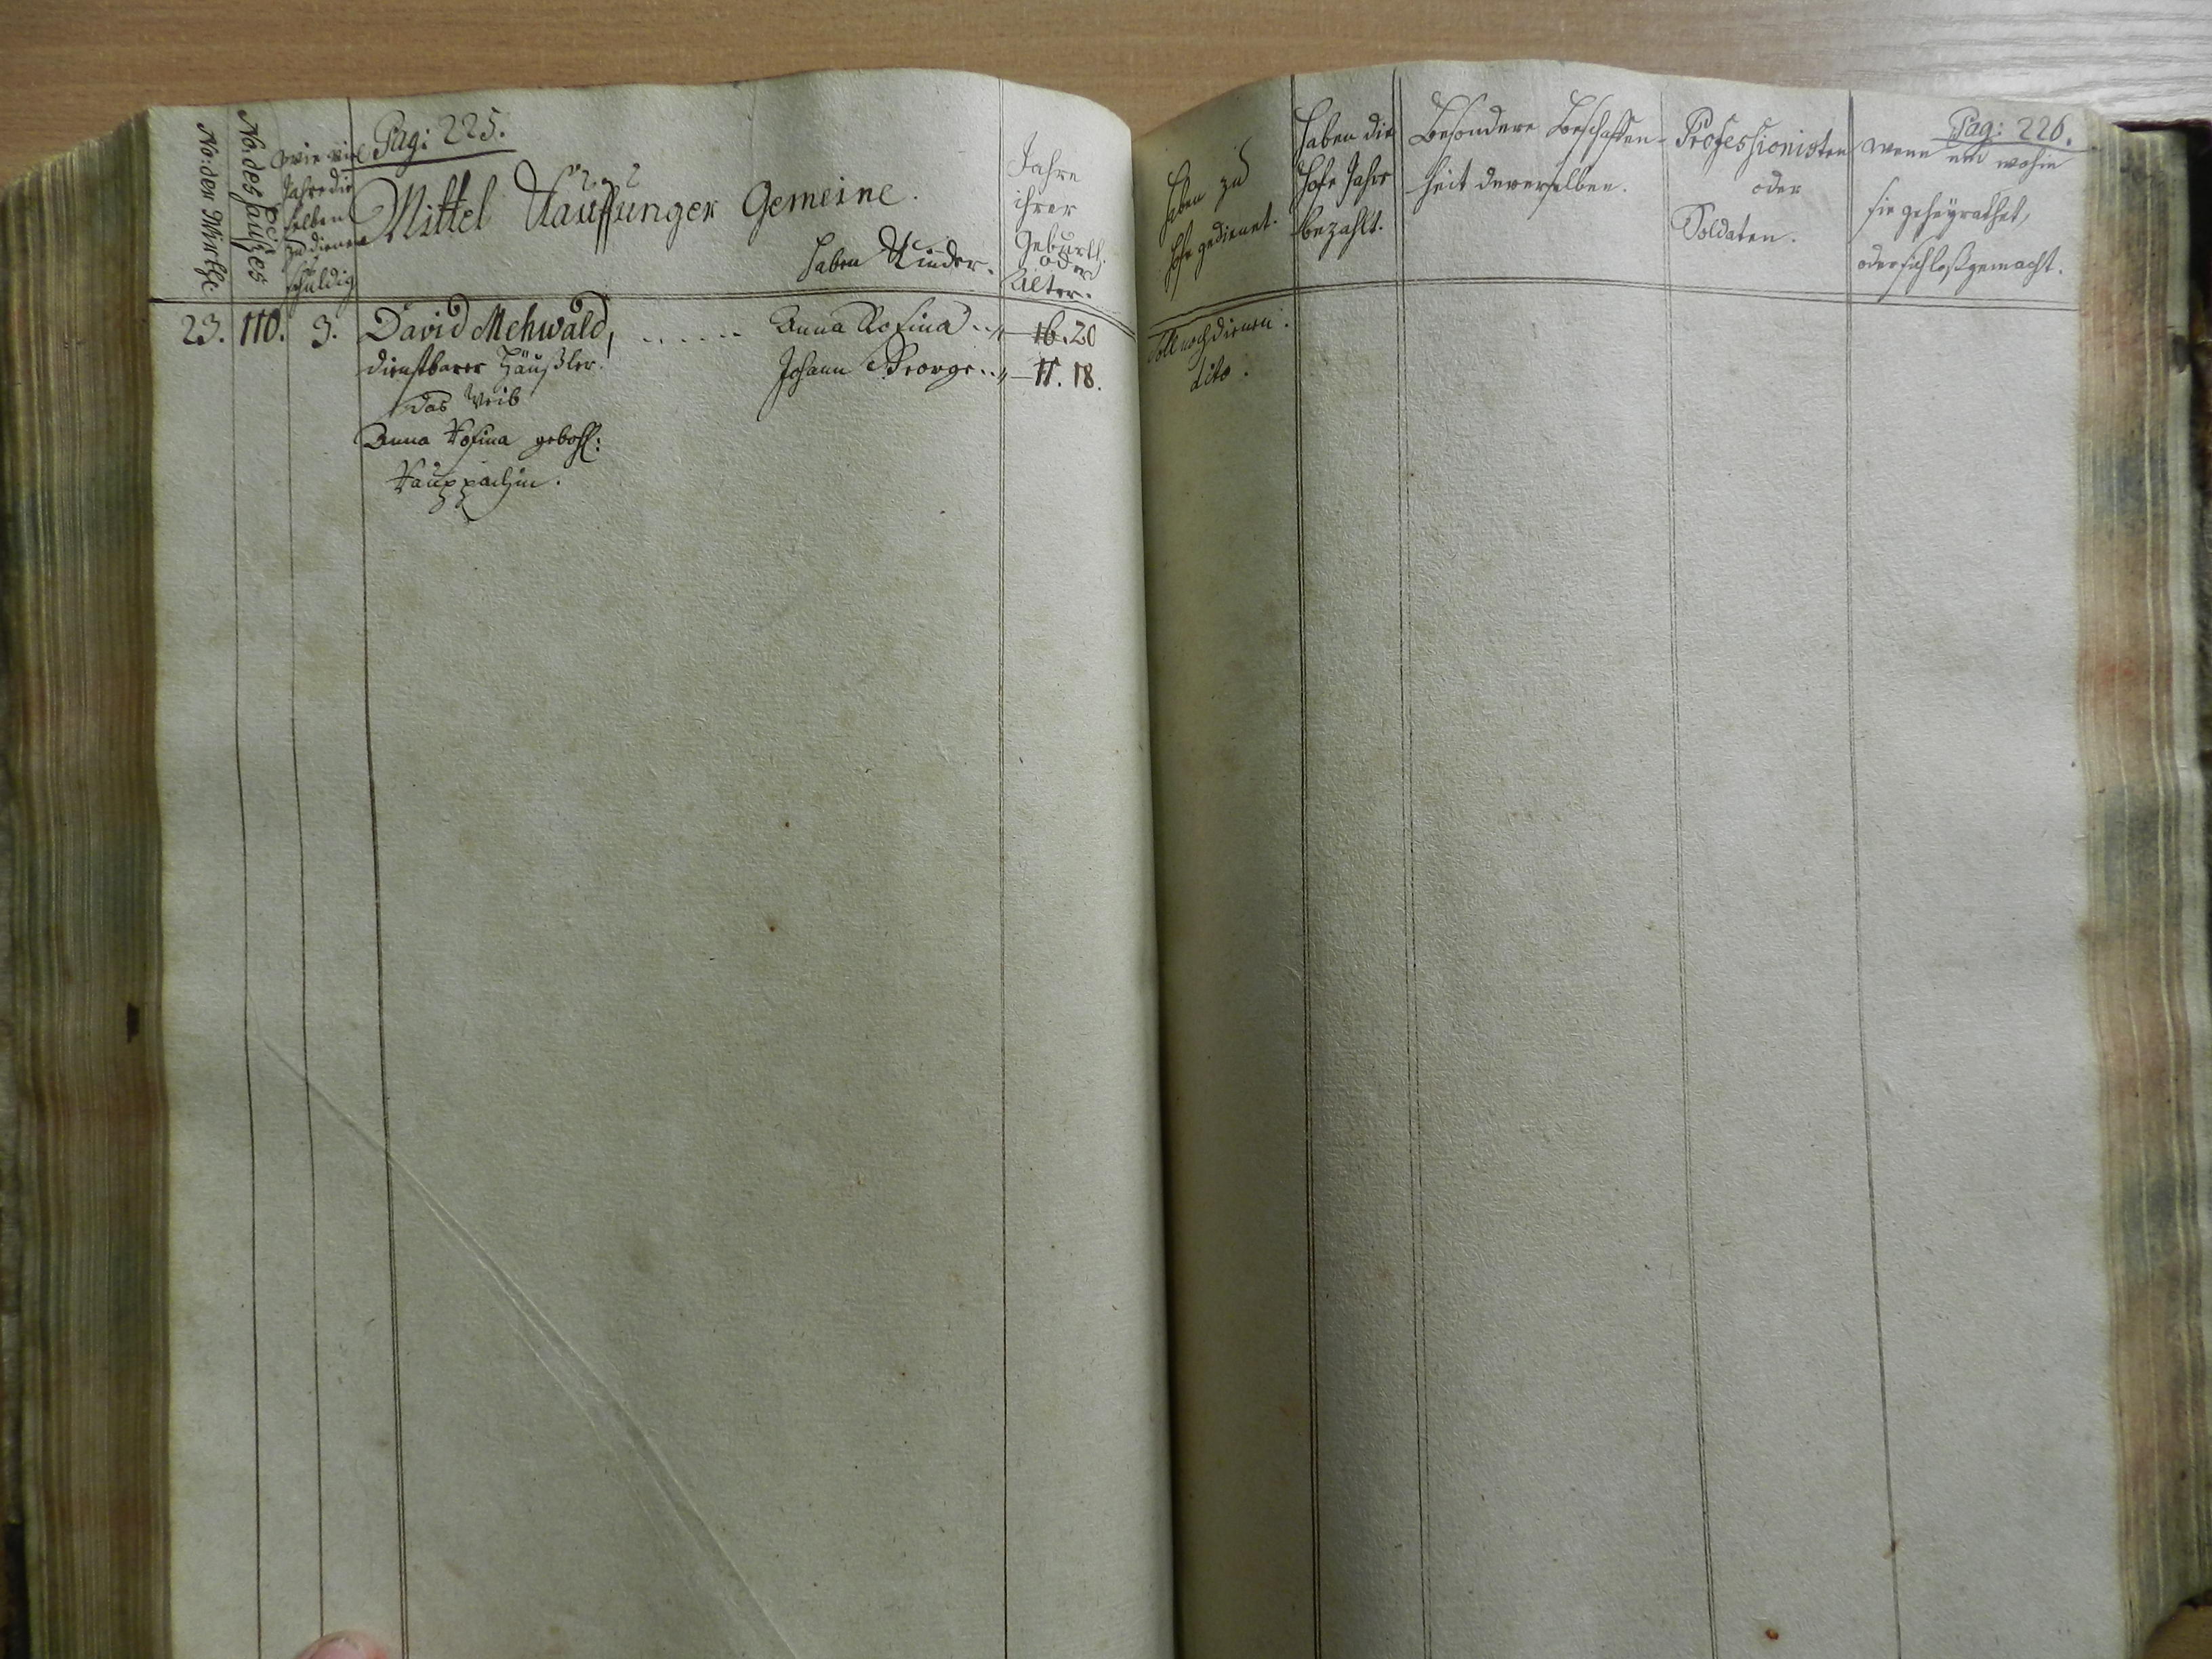 Pag: 225.
No: der Wirthe
No. des Haußes
wie viel
Jahre die
selben
zu dienen
schuldig
Mittel Kauffunger Gemeine.
haben Kinder.
Jahre
ihrer
Geburth
oder
Alter.
23. 110. 3. David Mehwald, ...... Anna Rosina ..,, 16. 20
dienstbarer Häußler. Johann George ..,, 11. 18.
das Weib
Anna Rosina gebohr:
Pag: 226.
haben zu
Hofe gedienet.
haben die
Hofe Jahre
bezahlt.
Besondere Beschaffen-
heit derverselben.
Professionisten
oder
Soldaten.
wenn und wohin
sie geheyrathet,
oder sich loßgemacht.
Soll noch dienen.
dito.